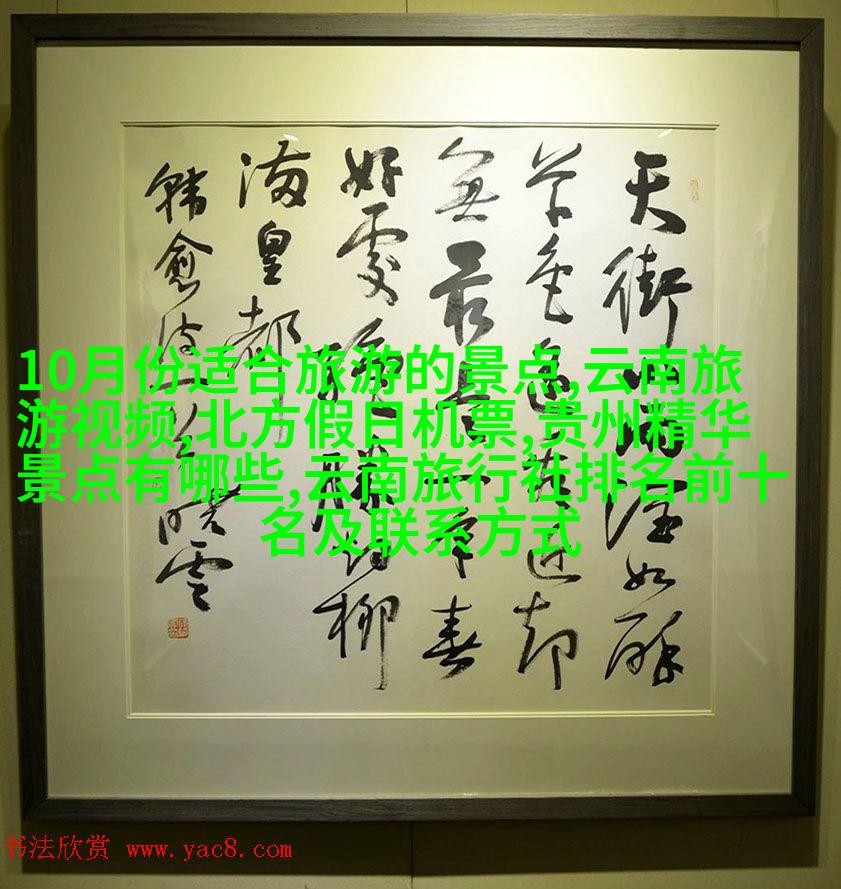 天街小雨潤如酥
草色遙看近却
無最是一年春
好處絕勝煙柳
滿皇都
韓愈詩一首
10月份适合旅游的景点,云南旅
游视频,北方假日机票,贵州精华
景点有哪些,云南旅行社排名前十
名及联系方式
书法欣赏 www.yac8.com